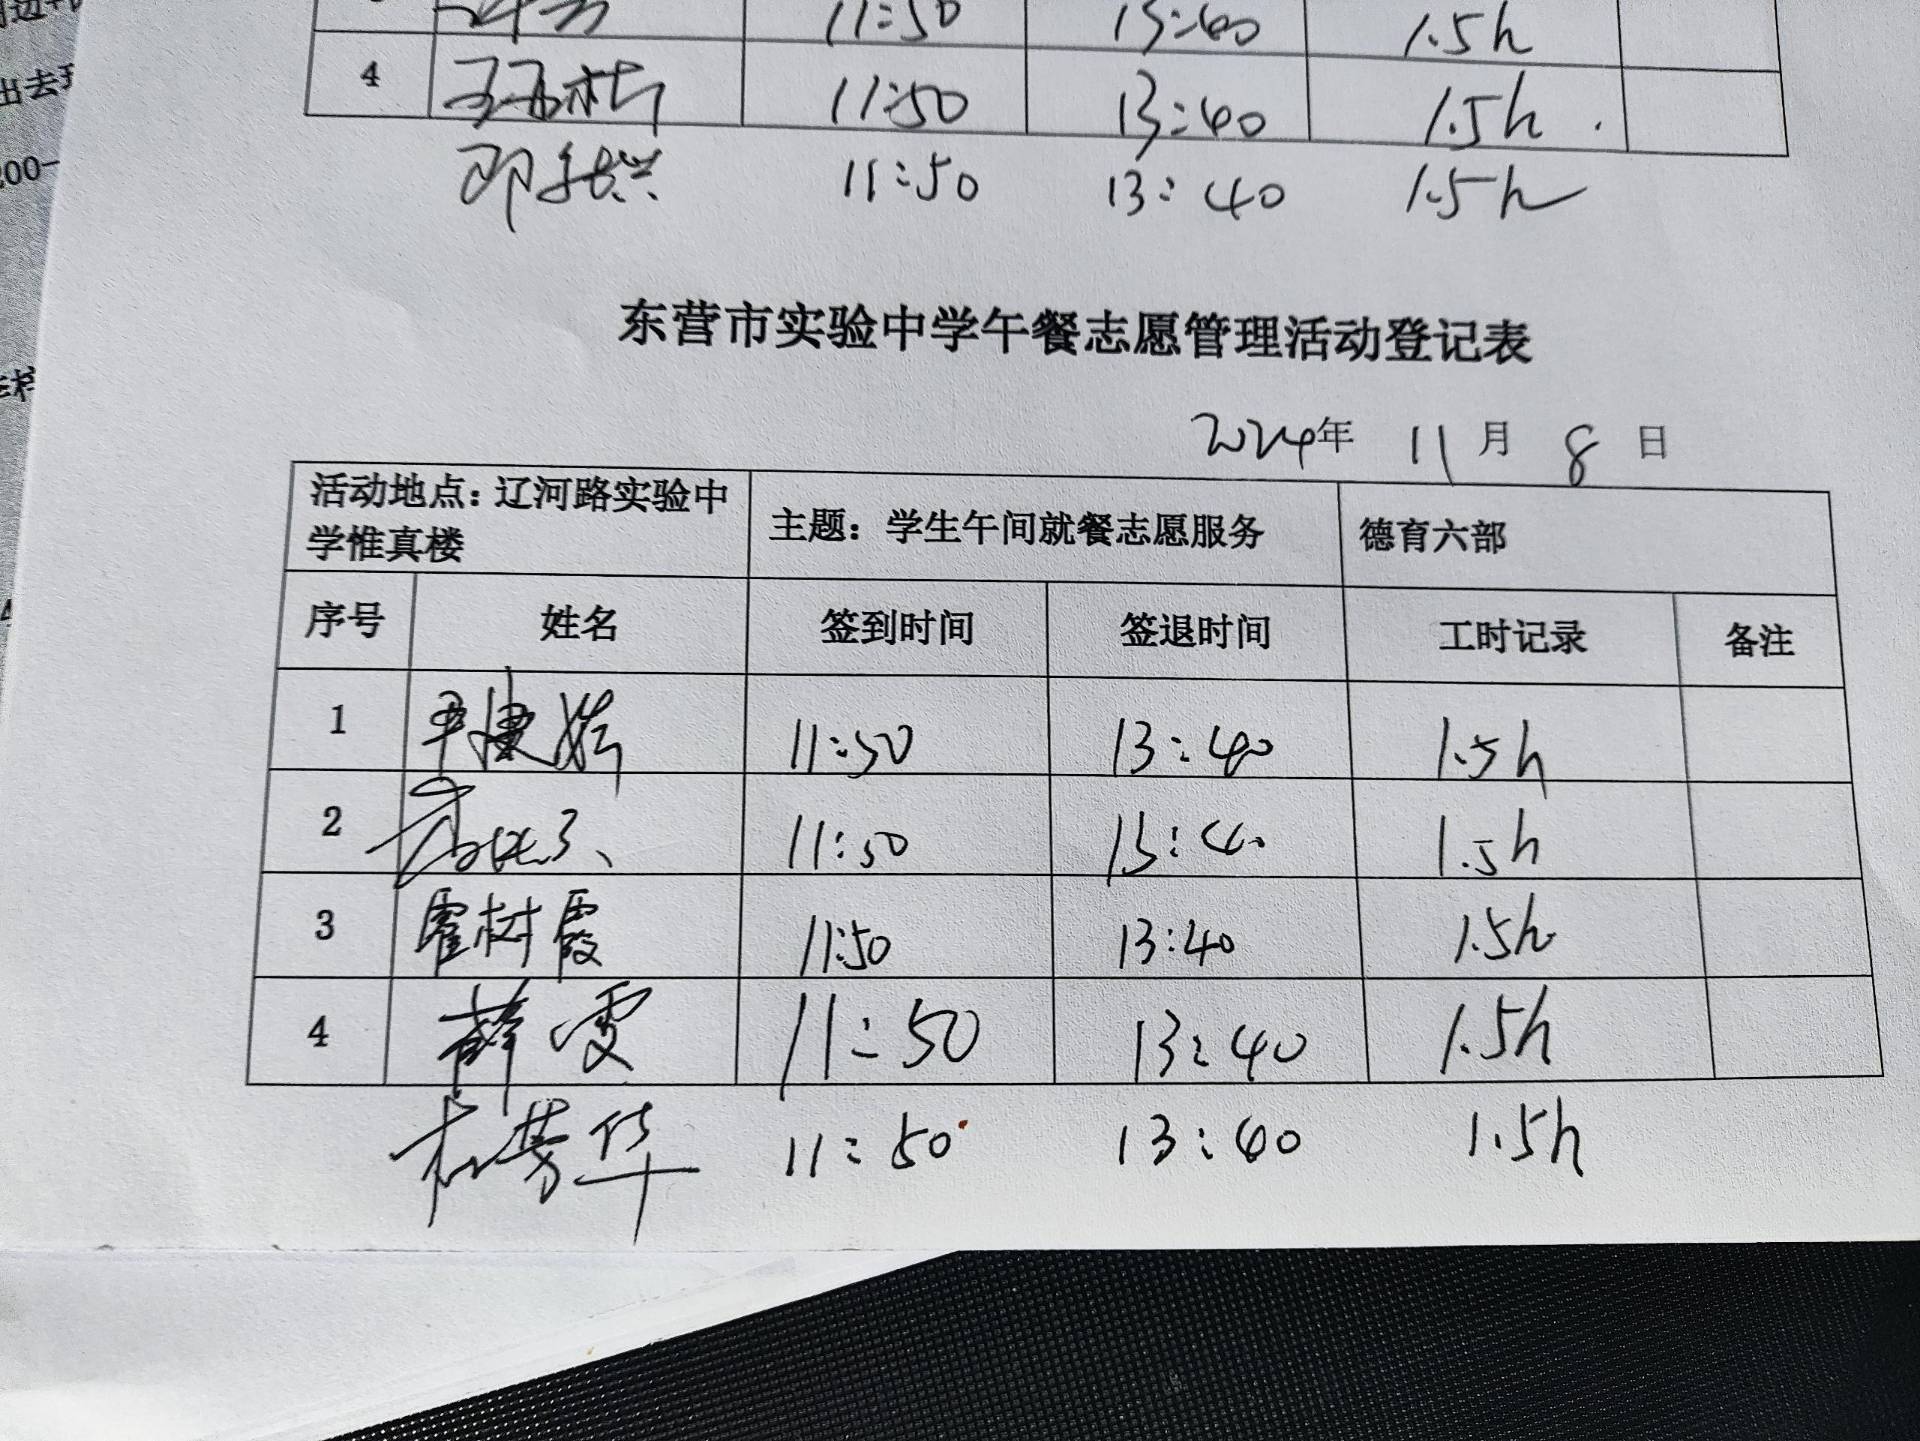 11:50 13:40 1.5h
4 11:50 13:40 1.5h
11:50 13:40 1.5h
东营市实验中学午餐志愿管理活动登记表
2024年 11月 8日
活动地点：辽河路实验中学惟真楼 主题：学生午间就餐志愿服务 德育六部
序号 姓名 签到时间 签退时间 工时记录 备注
1 11:50 13:40 1.5h
2 11:50 13:40 1.5h
3 霍树霞 11:50 13:40 1.5h
4 薛雯 11:50 13:40 1.5h
芳华 11:50 13:40 1.5h
出去